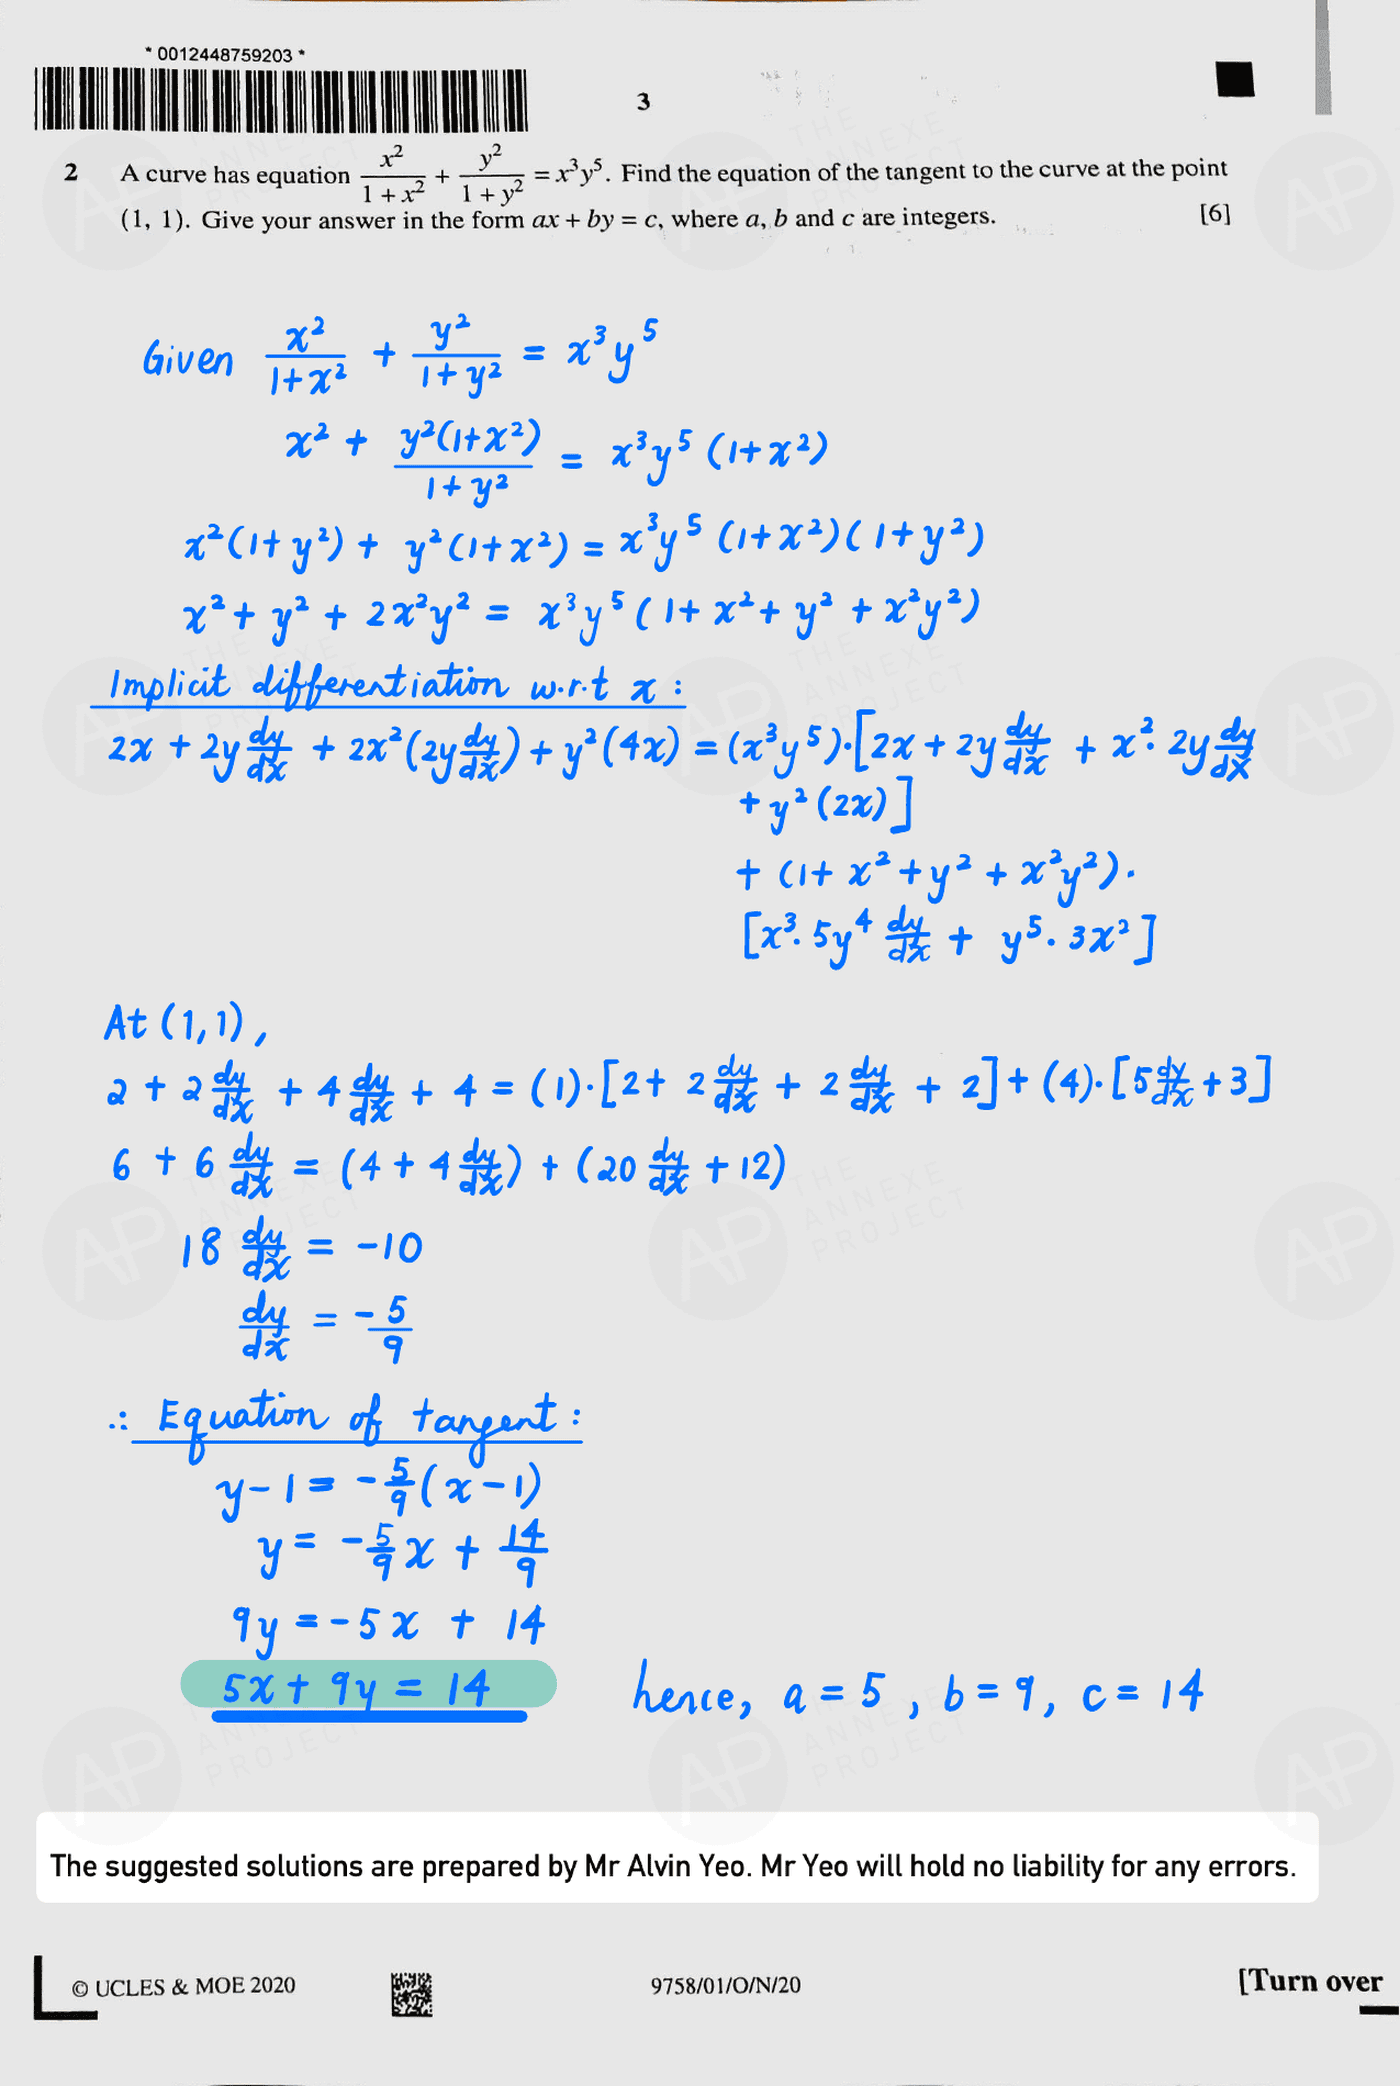 * 0012448759203 *
3
2 A curve has equation x²/(1 + x²) + y²/(1 + y²) = x³y⁵. Find the equation of the tangent to the curve at the point
(1, 1). Give your answer in the form ax + by = c, where a, b and c are integers. [6]
Given x²/(1+x²) + y²/(1+y²) = x³y⁵
x² + y²(1+x²)/(1+y²) = x³y⁵ (1+x²)
x²(1+y²) + y²(1+x²) = x³y⁵ (1+x²)(1+y²)
x² + y² + 2x²y² = x³y⁵ (1+x²+y²+x²y²)
Implicit differentiation w.r.t x :
2x + 2y dy/dx + 2x²(2y dy/dx) + y²(4x) = (x³y⁵)·[2x + 2y dy/dx + x²· 2y dy/dx
+ y²(2x)]
+ (1+x²+y²+x²y²)·
[x³· 5y⁴ dy/dx + y⁵· 3x²]
At (1,1),
2 + 2 dy/dx + 4 dy/dx + 4 = (1)·[2+ 2 dy/dx + 2 dy/dx + 2] + (4)·[5 dy/dx + 3]
6 + 6 dy/dx = (4 + 4 dy/dx) + (20 dy/dx + 12)
18 dy/dx = -10
dy/dx = -5/9
∴ Equation of tangent :
y-1 = -5/9(x-1)
y = -5/9 x + 14/9
9y = -5x + 14
5x + 9y = 14 hence, a = 5, b = 9, c = 14
The suggested solutions are prepared by Mr Alvin Yeo. Mr Yeo will hold no liability for any errors.
© UCLES & MOE 2020 9758/01/O/N/20 [Turn over
AP THE ANNEXE PROJECT